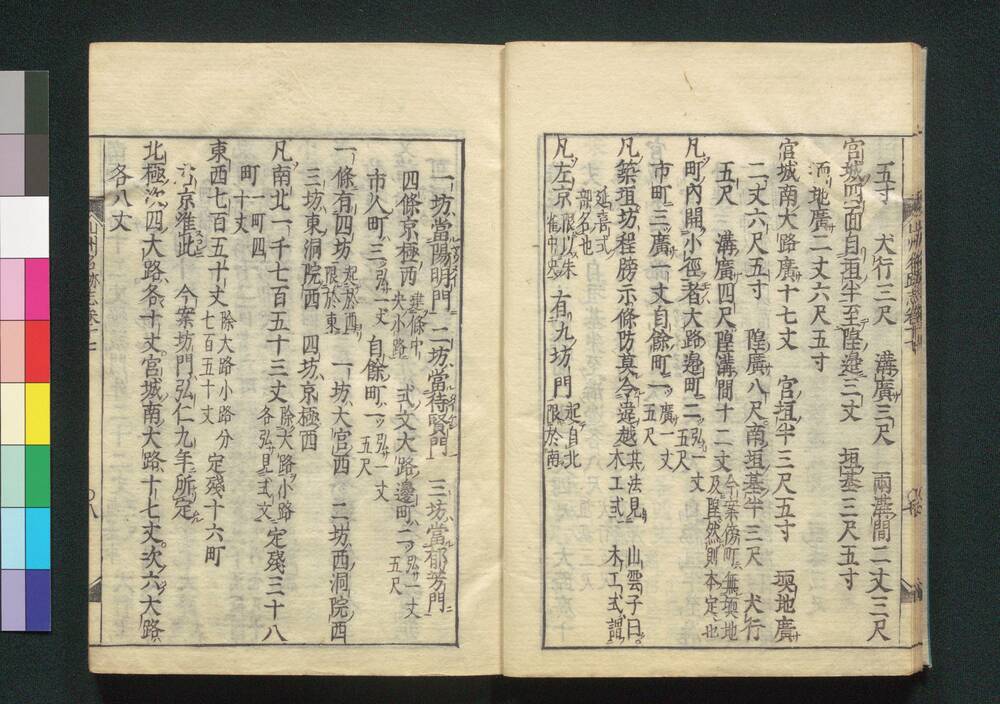 五寸 犬行三尺 溝廣三尺 兩溝間二丈三尺
宮城四面自垣半至隍邉三丈 垣基三尺五寸
壖地廣二丈六尺五寸
宮城南大路廣十七丈 宮垣半三尺五寸 壖地廣
二丈六尺五寸 隍廣八尺南垣基半三尺 犬行
五尺 溝廣四尺隍溝間十二丈 今案傍町無壖地及隍然則本定也
凡町內開小徑者大路邉町二 廣一丈五尺
市町三廣一丈自餘町一 廣一丈五尺
凡築垣坊程牓示條防莫令違越 其法見木工式 山雲子曰木工式謂
延喜式部名也
凡左京 限以朱雀中央 有九坊門 起自北限於南
一坊當陽明門 二坊當待賢門 三坊當郁芳門
四條京極西 大路邊町二 弘一丈五尺
市人町三 弘一丈 自餘町一 弘一丈五尺
一條有四坊 起於西限於東 一坊大宮西 二坊西洞院西
三坊東洞院西 四坊京極西
凡南北一千七百五十三丈 除大路小路各弘サ見式文 定殘三十八
町 一町四十丈
東西七百五十丈 除大路小路分七百五十丈 定殘十六町
右京准此 今案坊門弘仁九年所定
北極次四大路各十丈宮城南大路十七丈次六大路
各八丈